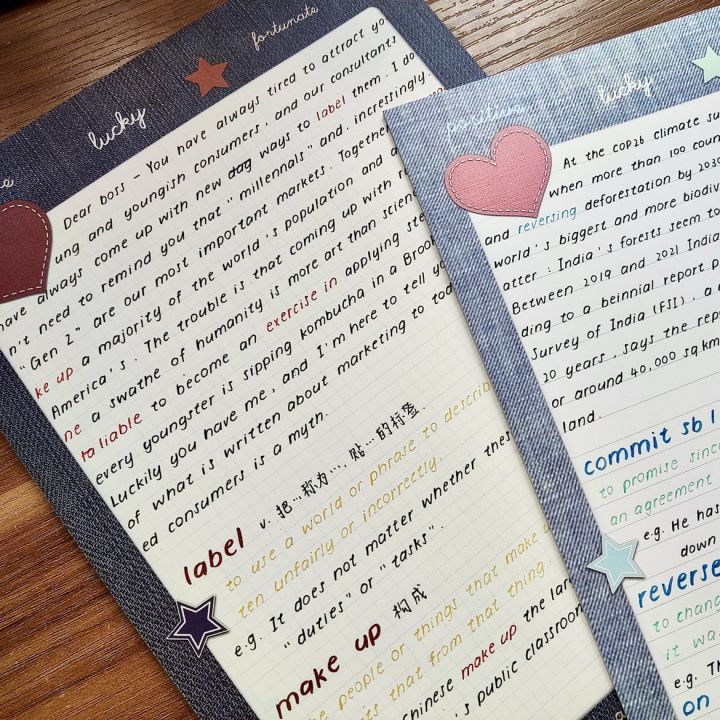 fortunate
lucky
Dear boss - You have always tired to attract yo
ung and youngish consumers, and our consultants
have always come up with new dog ways to label them. I do
n't need to remind you that "millennals" and, increasingly,
"Gen Z" are our most important markets. Together
ke up a majority of the world's population and a
America's. The trouble is that coming up with
ne a swathe of humanity is more art than scien
ta liable to become an exercise in applying ste
every youngster is sipping kombucha in a Brook
Luckily you have me, and I'm here to tell yo
of what is written about marketing to tod
ed consumers is a myth.
label v. 把…称为…, 贴…的标签.
to use a world or phrase to describ
ten unfairly or incorrectly.
e.g. It does not matter whether thes
"duties" or "tasks".
make up 构成
people or things that make
ts that from that thing.
Chinese make up the lar
's public classroom
lucky
At the COP26 climate su
when more than 100 coun
and reversing deforestation by 2030
world's biggest and more biodiv
atter : India's forests seem to
Between 2019 and 2021 India
ding to a beinnial report p
Survey of India (FSI), a
20 years, says the rep
or around 40,000 sq km
land.
commit sb
to promise since
an agreement
e.g. He has
down
reverse
to chang
it wa
e.g. Th
on